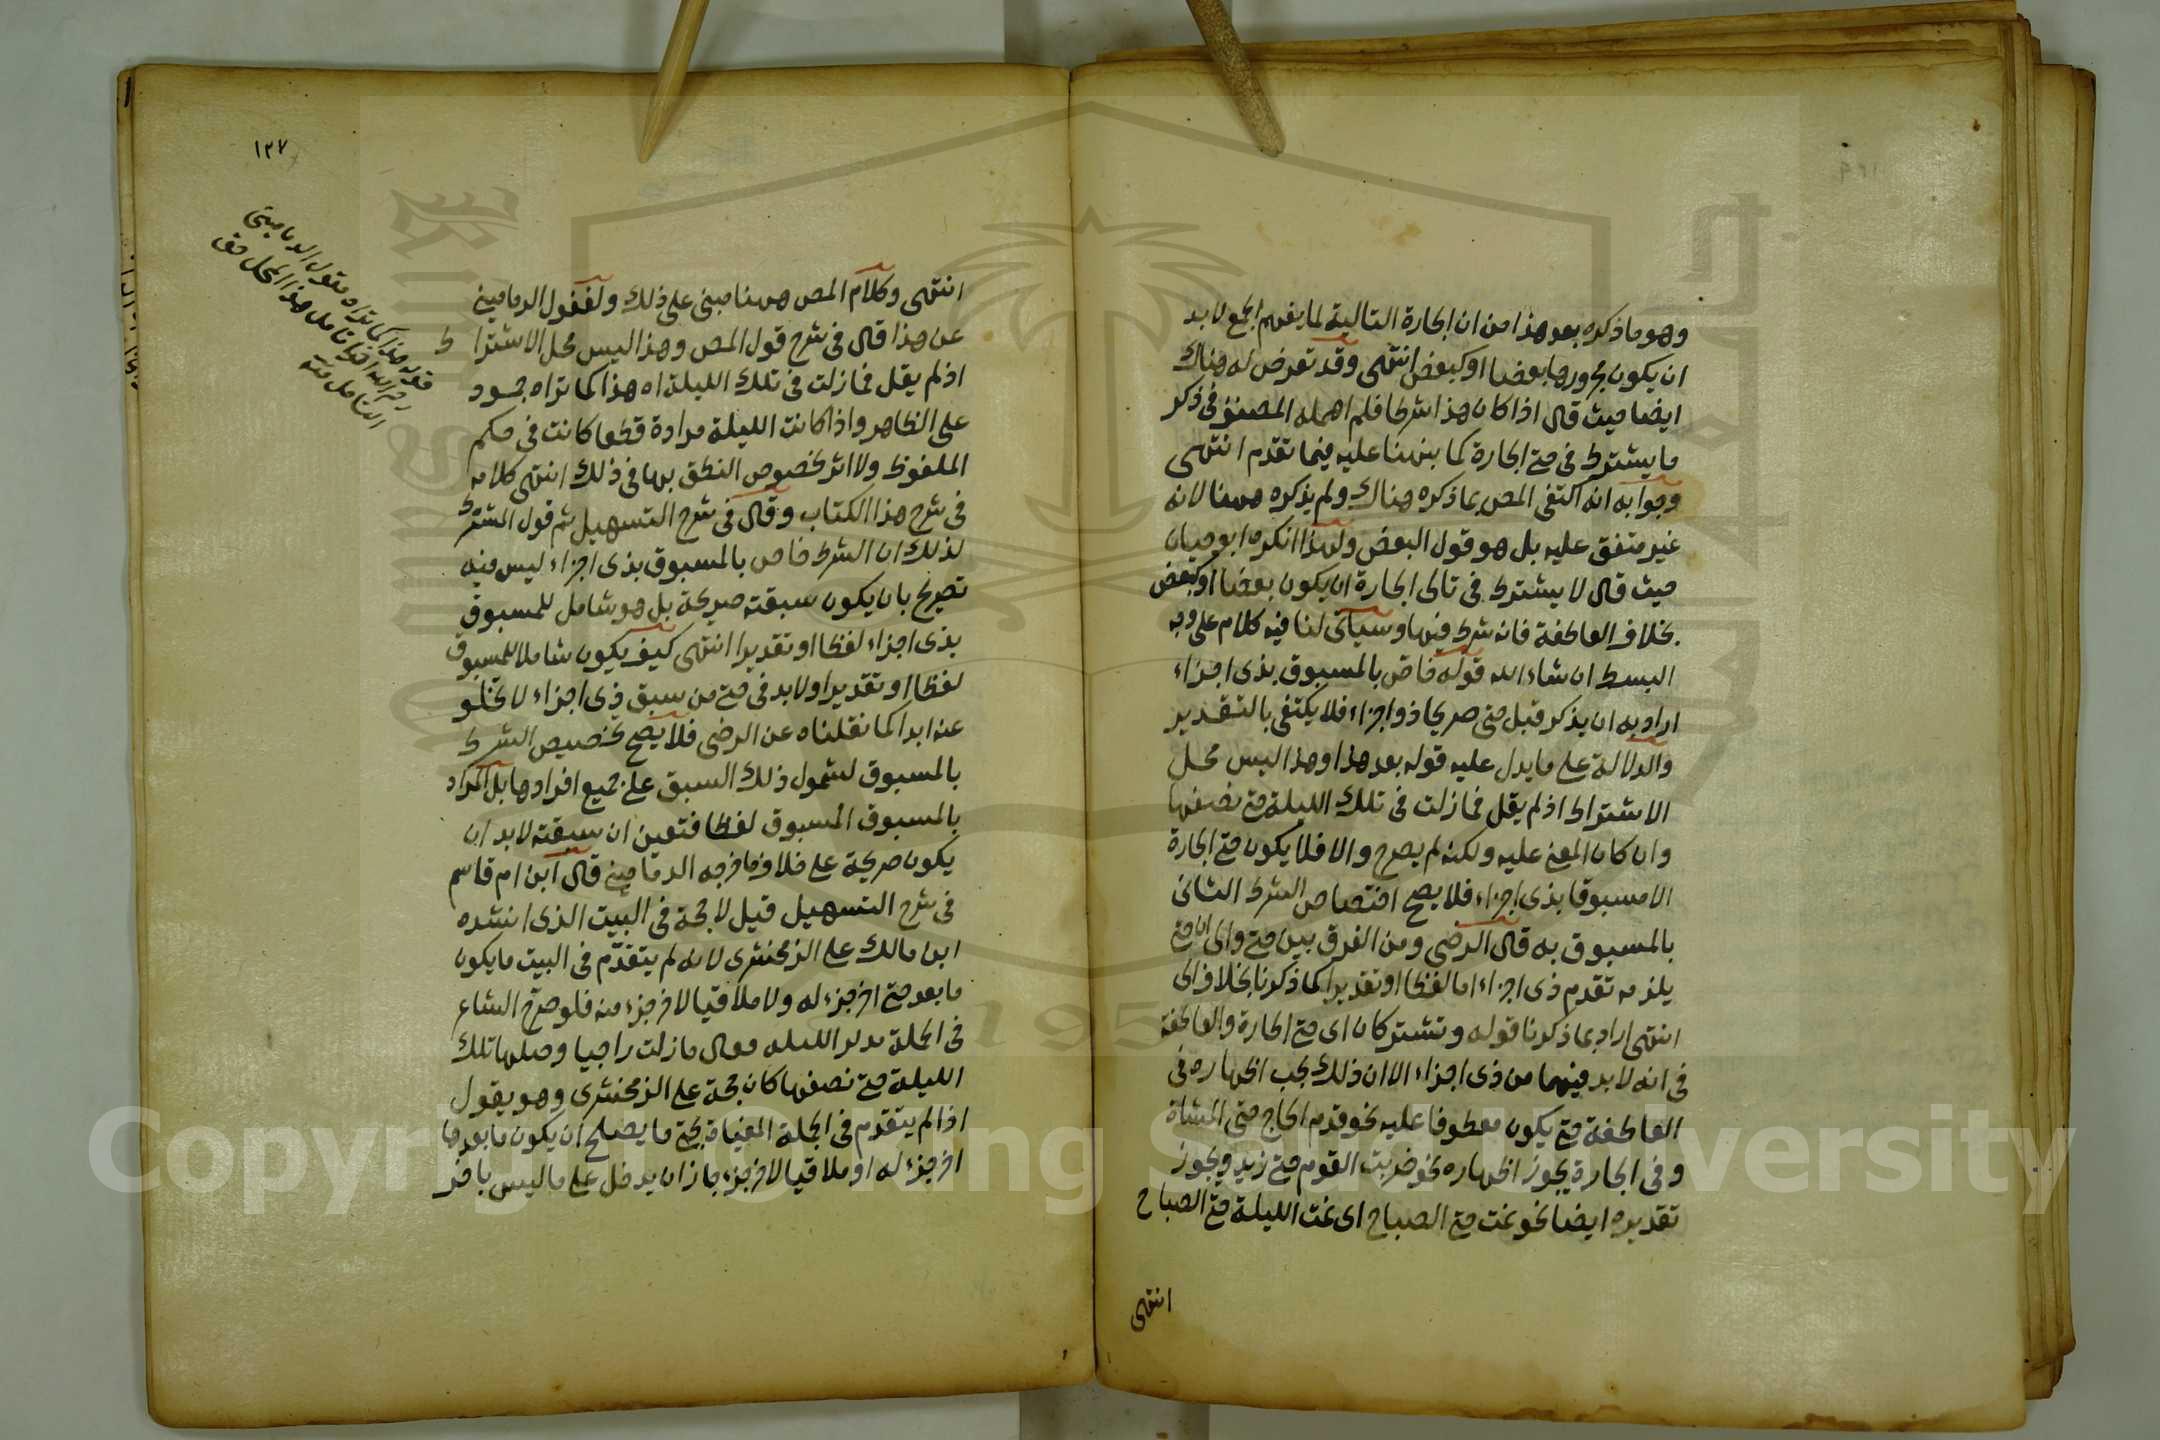 وهو ما ذكره بعد هذا من ان الجارة التالية لما يفهم الجمع لا بد
ان يكون مجرورها بعضا او كبعض انتهى وقد تعرض له هناك
ايضا حيث قال اذا كان هذا شرطا فلم اهمله المصنف في ذكر
ما يشترط في حتى الجارة كما نبهنا عليه فيما تقدم انتهى
وجوابه انه اكتفى المص بما ذكره هناك ولم يذكره ههنا لانه
غير متفق عليه بل هو قول البعض ولهذا انكره ابو حيان
حيث قال لا يشترط في تالى الجارة ان يكون بعضا او كبعض
بخلاف العاطفة فانه شرط فيها وسياتى لنا فيه كلام على وجه
البسط ان شاء الله قوله خاص بالمسبوق بذى اجزاء
اراد به ان يذكر قبل حتى صريحا ذو اجزاء فلا يكتفى بالتقدير
والدلالة على ما يدل عليه قوله بعد هذا وهذا ليس محل
الاشتراط اذ لم يقل فمازلت في تلك الليلة حتى نصفها
وان كان المعنى عليه ولكنه لم يصرح والا فلا يكون حتى الجارة
الا مسبوقا بذى اجزاء فلا يصح اختصاص الشرط الثانى
بالمسبوق به قال الرضى ومن الفرق بين حتى والى ان حتى
يلزمه تقدم ذى اجزاء اما لفظا او تقديرا كما ذكرنا بخلاف الى
انتهى اراد بما ذكرنا قوله وتشتركان اى حتى الجارة والعاطفة
في انه لا بد فيهما من ذى اجزاء الا ان ذلك يجب اظهاره في
العاطفة حتى يكون معطوفا عليه نحو قدم الحاج حتى المشاة
وفي الجارة يجوز اظهاره نحو ضربت القوم حتى زيد ويجوز
تقديره ايضا نحو نمت حتى الصباح اى نمت الليلة حتى الصباح
انتهى
١٢٧
انتهى وكلام المص ههنا مبنى على ذلك ولغفول الدمامينى
عن هذا قال في شرح قول المص وهذا ليس محل الاشتراط
اذ لم يقل فمازلت في تلك الليلة اه هذا كما تراه جمود
على الظاهر واذا كانت الليلة مرادة قطعا كانت في حكم
الملفوظ ولا اثر لخصوص النطق بها في ذلك انتهى كلامه
في شرح هذا الكتاب وقال في شرح التسهيل ثم قول المشترط
لذلك ان الشرط خاص بالمسبوق بذى اجزاء ليس فيه
تصريح بان يكون سبقته صريحة بل هو شامل للمسبوق
بذى اجزاء لفظا او تقديرا انتهى كيف يكون شاملا للمسبوق
لفظا او تقديرا ولا بد في حتى من سبق ذى اجزاء لا تخلو
عنه ابدا كما نقلناه عن الرضى فلا يصح تخصيص الشرط
بالمسبوق لشمول ذلك السبق على جميع افرادها بل المراد
بالمسبوق المسبوق لفظا فتعين ان سبقته لا بد ان
يكون صريحة على خلاف ما خرجه الدمامينى قال ابن ام قاسم
في شرح التسهيل قيل لا حجة في البيت الذى انشده
ابن مالك على الزمخشرى لانه لم يتقدم في البيت ما يكون
ما بعد حتى اخر جزء له ولا ملاقيا لاخر جزء منه فلو صرح الشاعر
في الجملة بذكر الليلة فقال مازلت راجيا وصلها تلك
الليلة حتى نصفها كان حجة على الزمخشرى وهو يقول
اذا لم يتقدم في الجملة المغياة بحتى ما يصلح ان يكون ما بعدها
اخر جزء له او ملاقيا لاخر جزء جاز ان يدخل على ما ليس باخر
قوله هذا كما تراه مقول الدمامينى
رحمه الله تامل هذا المحل حق
التامل منه
Copyright © King Saud University
1957